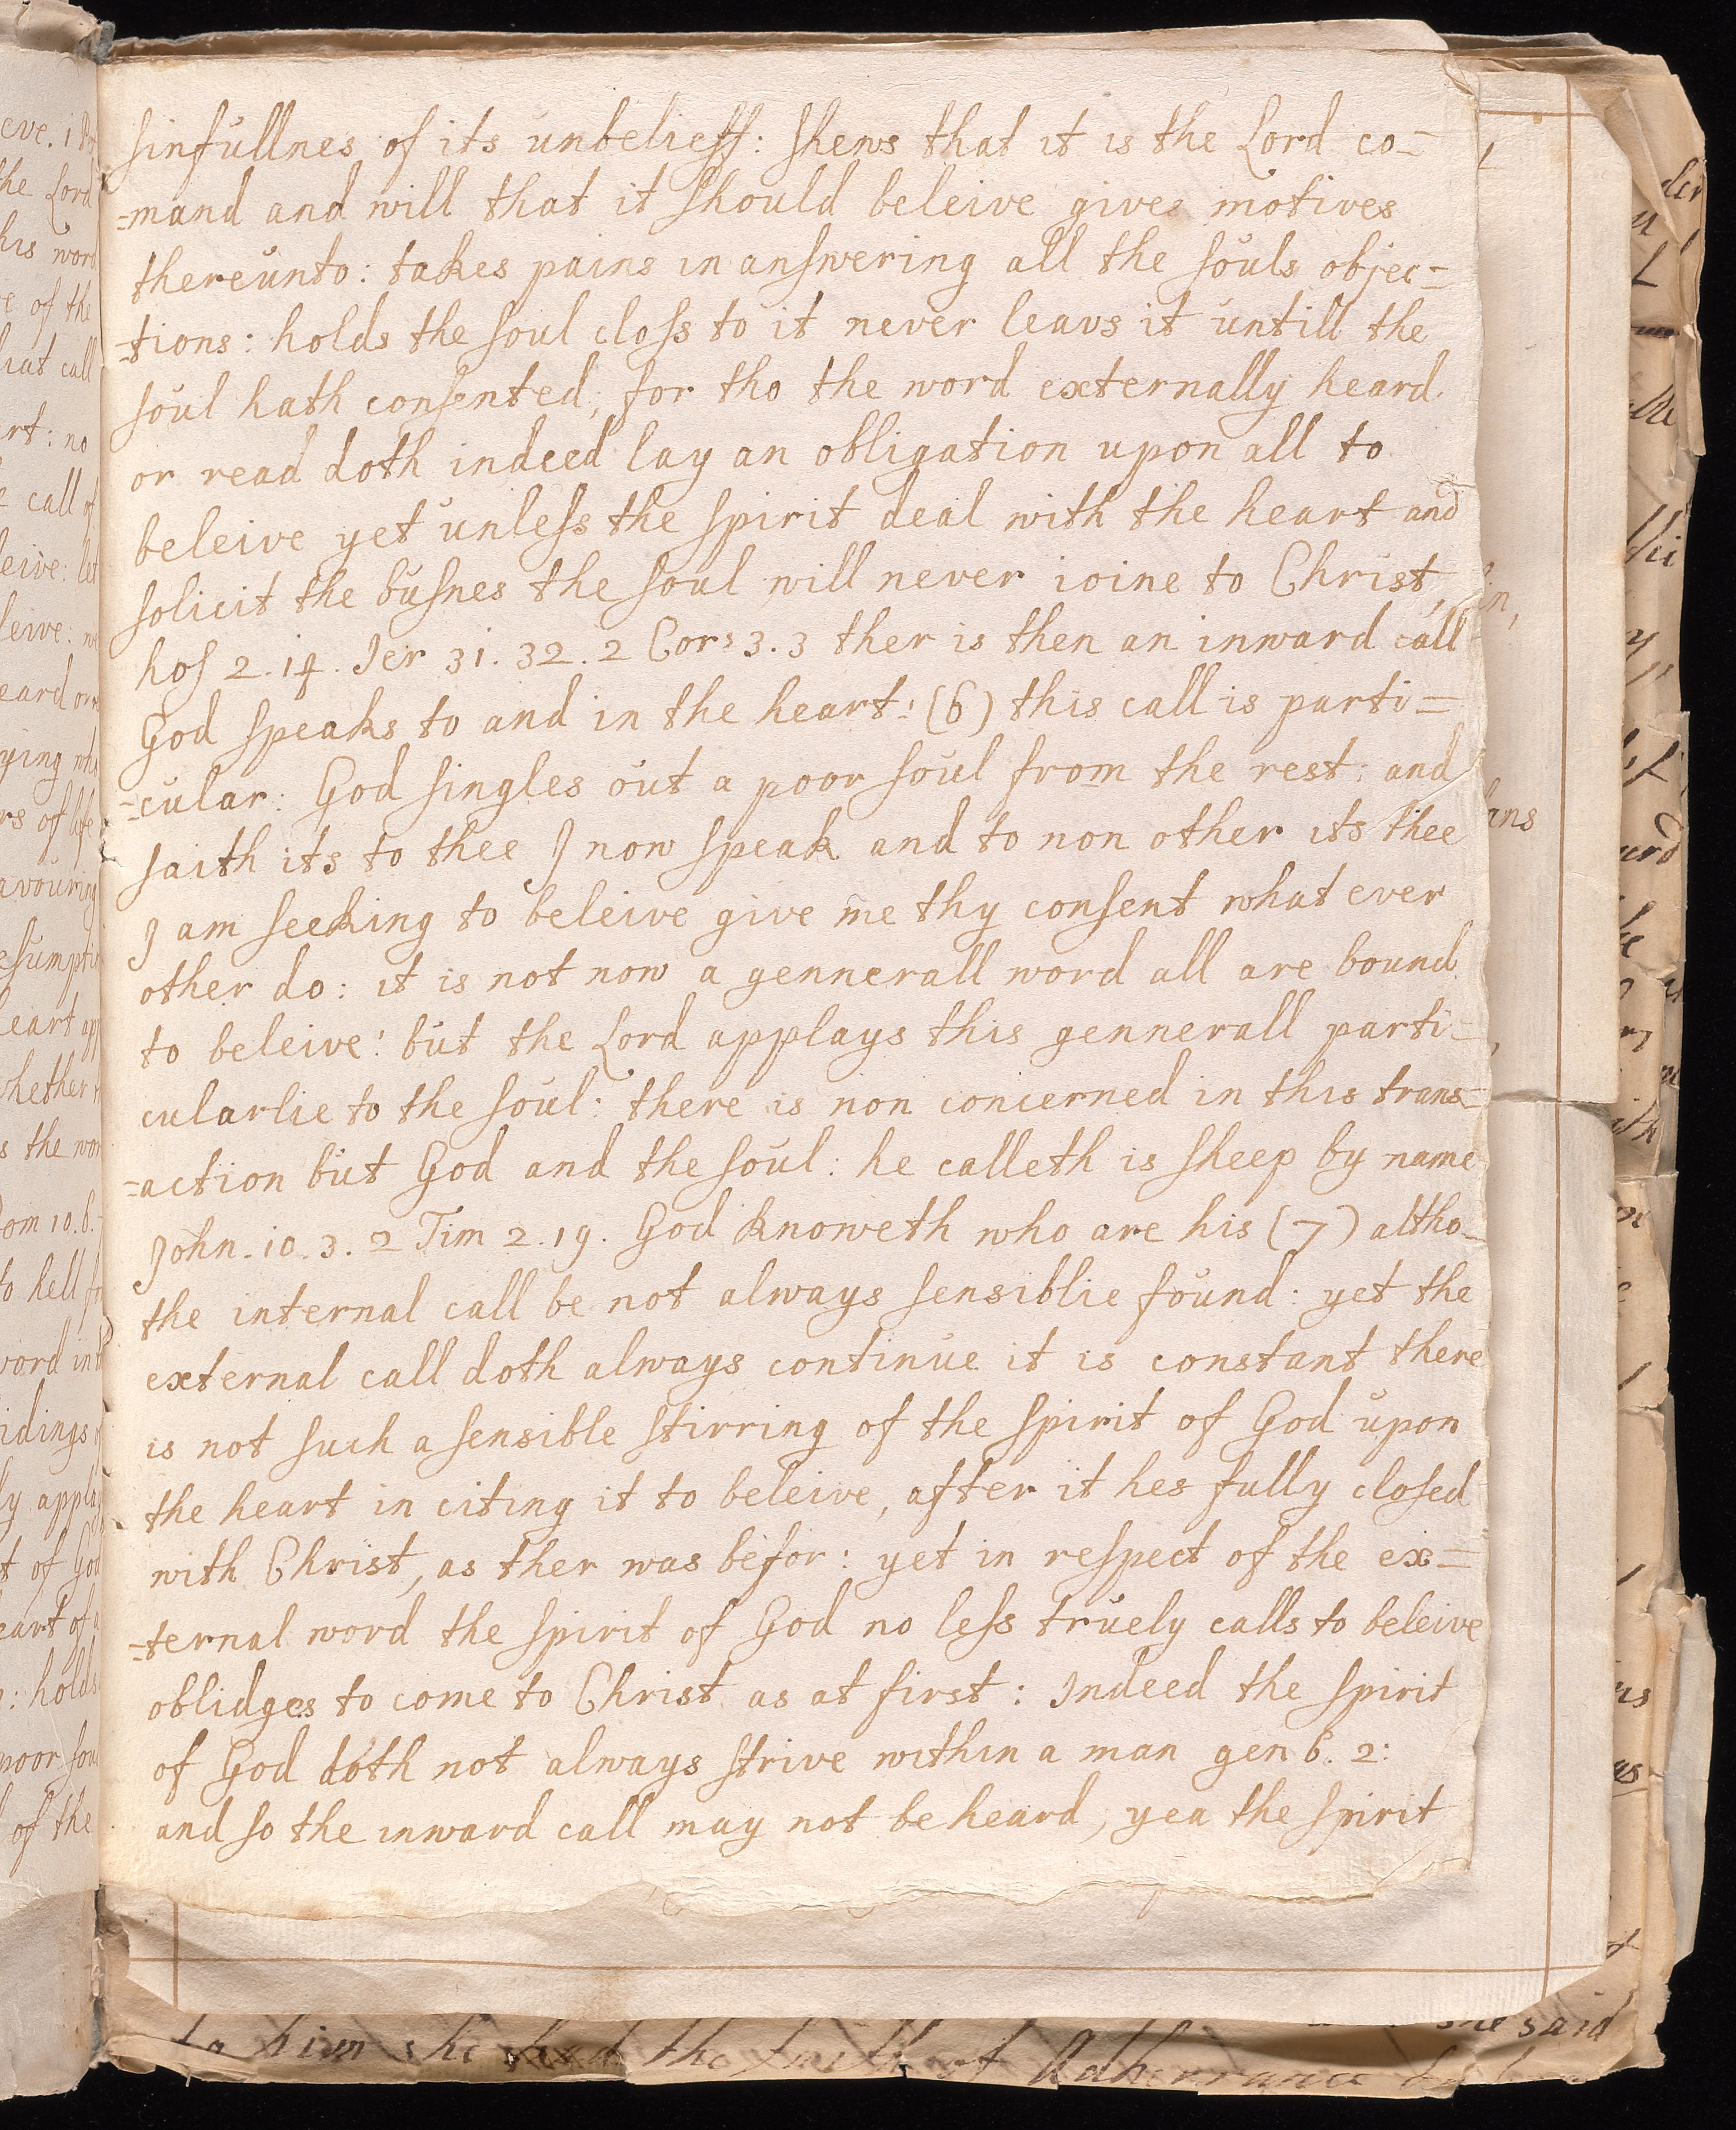 sinfullnes of its unbelieff: shews that it is the Lord co=
=mand and will that it should beleive gives motives
thereunto: takes pains in answering all the souls objec=
=tions: holds the soul closs to it never leavs it untill the
soul hath consented, for tho the word externally heard
or read doth indeed lay an obligation upon all to
beleive yet unless the spirit deal with the heart and
solicit the busnes the soul will never ioine to Christ,
hos 2.14. Jer 31. 32. 2 Cor: 3.3 ther is then an inward call
God speaks to and in the heart: (6) this call is parti=
=cular: God singles out a poor soul from the rest: and
saith its to thee I now speak and to non other its thee
I am seeking to beleive give me thy consent what ever
other do: it is not now a gennerall word all are bound
to beleive: but the Lord applays this gennerall parti=
cularlie to the soul: there is non concerned in this trans=
=action but God and the soul: he calleth is sheep by name
John. 10. 3. 2 Tim 2. 19. God knoweth who are his (7) altho=
the internal call be not always sensiblie found: yet the
external call doth always continue it is constant there
is not such a sensible stirring of the spirit of God upon
the heart in citing it to beleive, after it hes fully closed
with Christ, as ther was befor: yet in respect of the ex=
=ternal word the spirit of God no less truely calls to beleive
oblidges to come to Christ as at first: Indeed the spirit
of God doth not always strive within a man gen 6. 2:
and so the inward call may not be heard, yea the spirit
to him she had the faith of Adherrance
she said